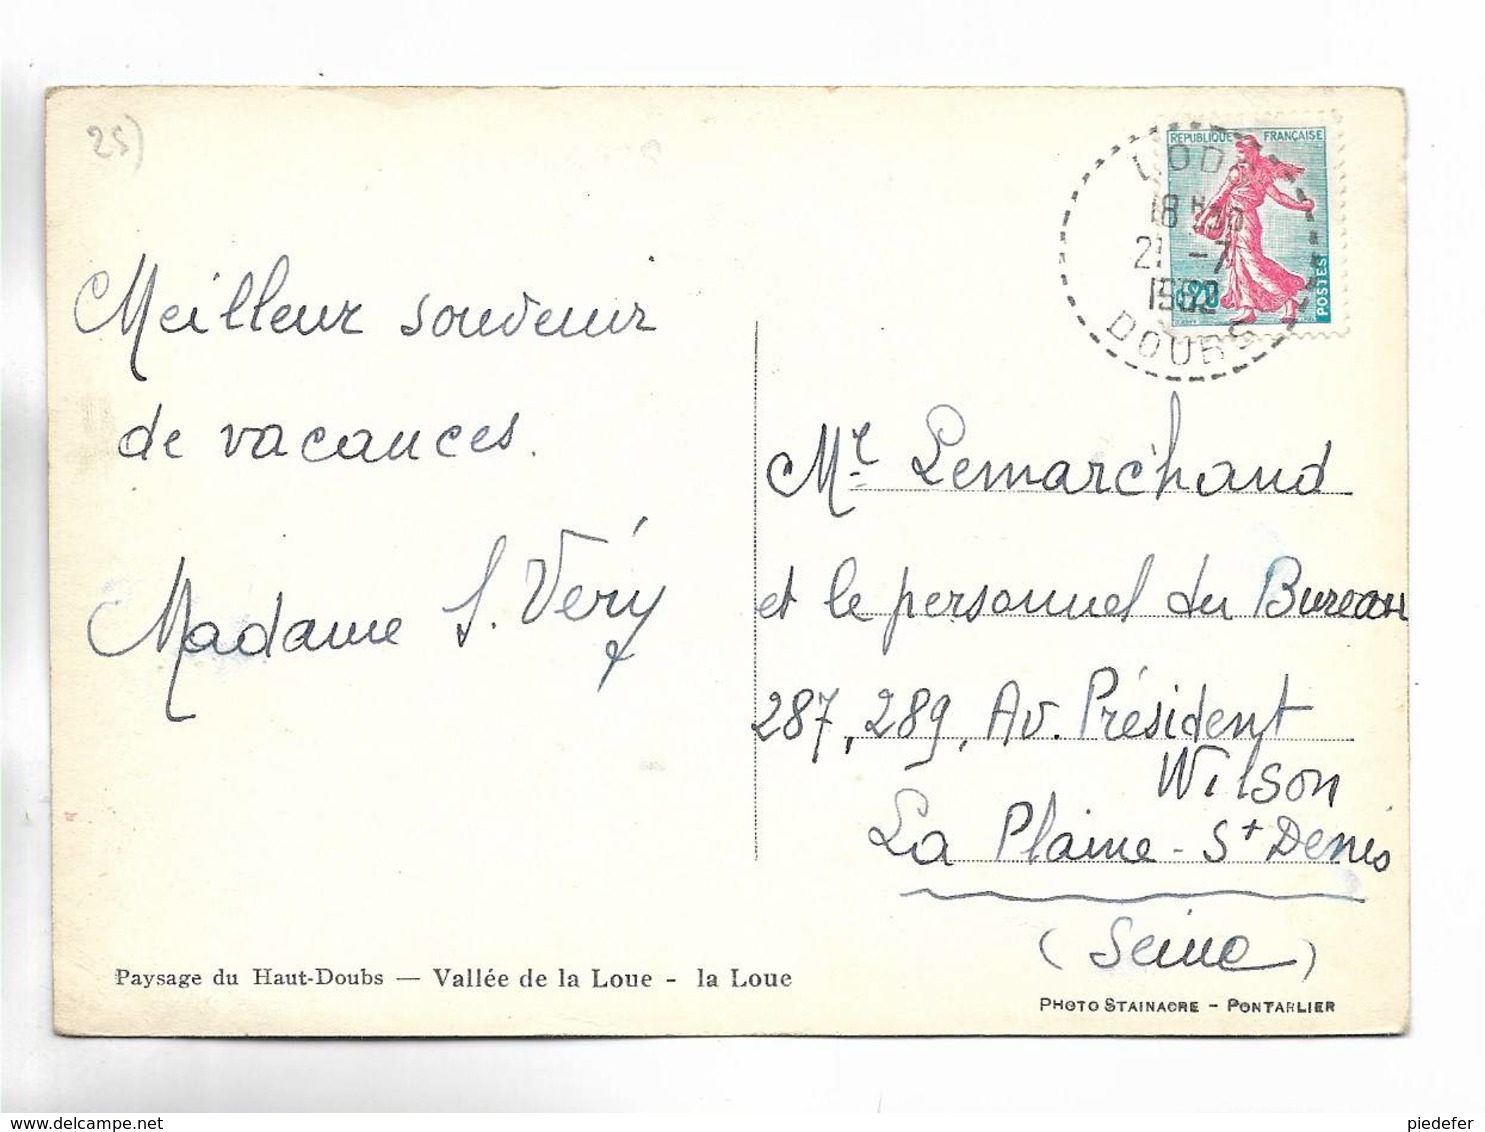 25)
REPUBLIQUE FRANÇAISE
LODS
18H30
21 -7
1962
0,20
POSTES
DOUBS
Meilleur souvenir
de vacances.
Madame S. Véry
Mr Lemarchand
et le personnel du Bureau
287, 289, Av. Président
Wilson
La Plaine - St Denis
(Seine)
Paysage du Haut-Doubs — Vallée de la Loue - la Loue
PHOTO STAINACRE - PONTARLIER
delcampe.net
piedefer